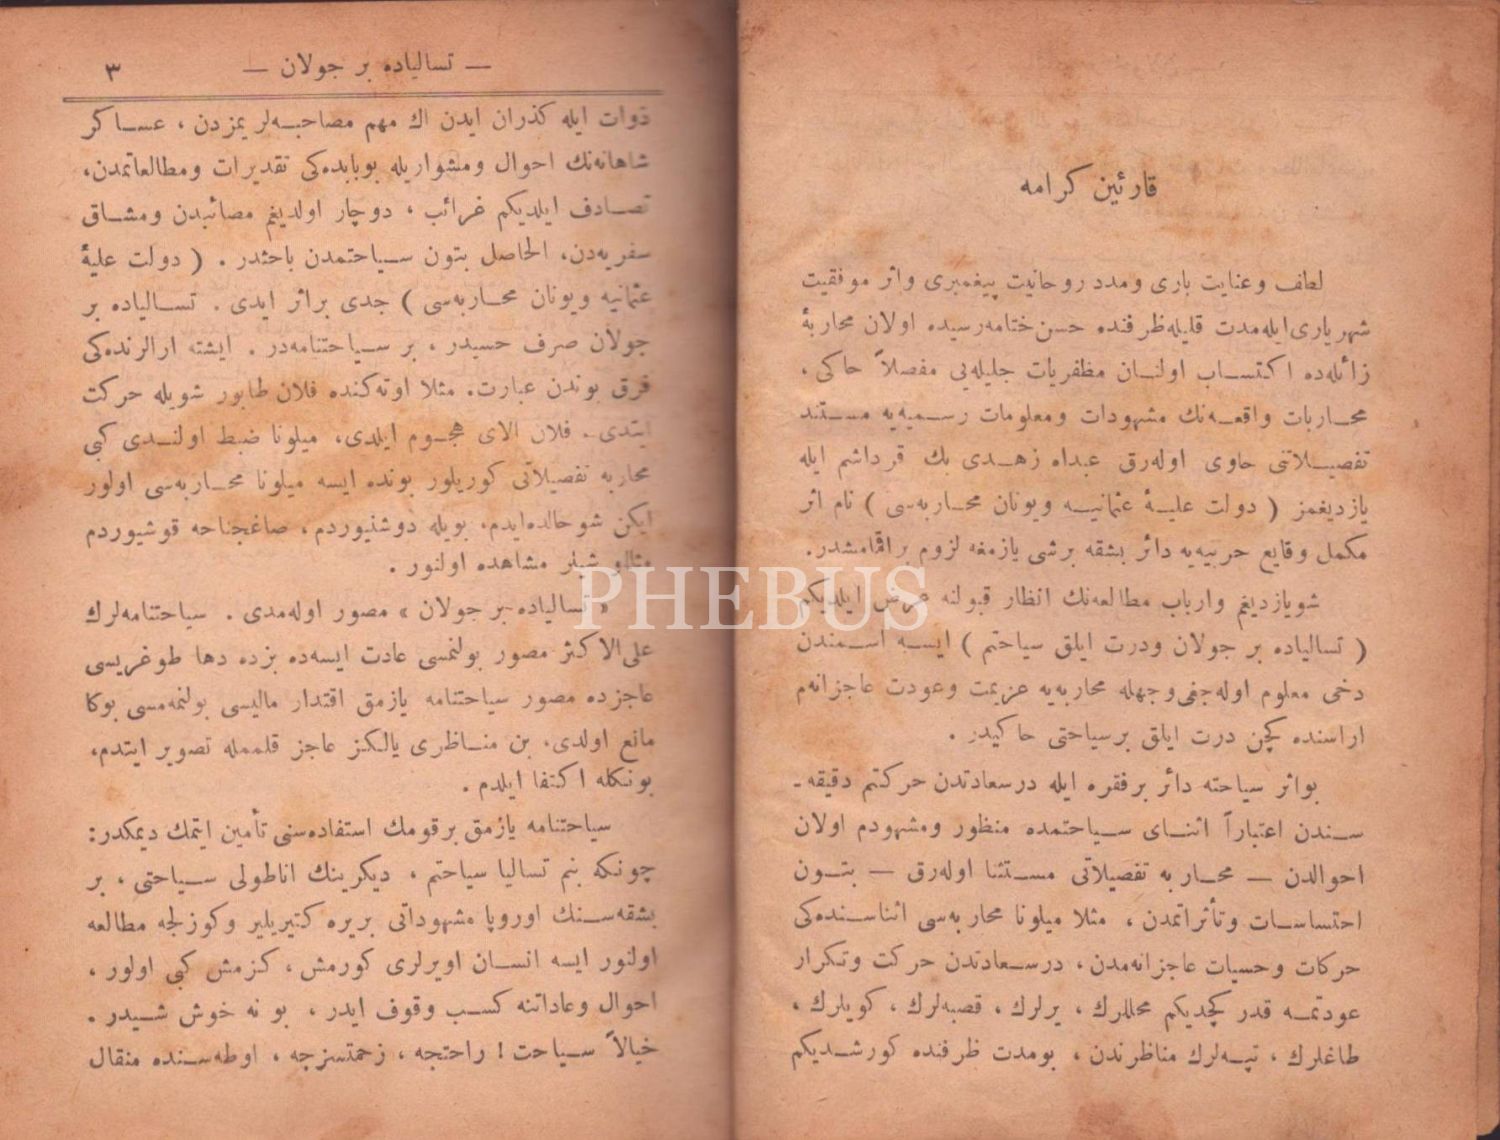 قارئين كرامه
لطف وعنايت بارى ومدد روحانيت پيغمبرى واثر موفقيت
شهريارى ايله مدت قليله ظرفنده حسن ختامه رسيده اولان محاربهٔ
زائله ده اكتساب اولنان مظفريات جليله يى مفصلاً حاكى ،
محاربات واقعه نك مشهودات ومعلومات رسميه يه مستند
تفصيلاتى حاوى اوله رق عبداه زهدى بك قرداشم ايله
يازديغمز ( دولت عليهٔ عثمانيه ويونان محاربه سى ) نام اثر
مكمل وقايع حربيه يه دائر بشقه برشى يازمغه لزوم براقمامشدر.
شويازديغم وارباب مطالعه نك انظار قبولنه عرض ايلديكم
( تسالياده بر جولان ودرت ايلق سياحتم ) ايسه اسمندن
دخى معلوم اوله جغى وجهله محاربه يه عزيمت وعودت عاجزانه م
اراسنده كچن درت ايلق برسياحتى حاكيدر .
بواثر سياحته دائر برفقره ايله درسعادتدن حركتم دقيقه ـ
سندن اعتباراً اثناى سياحتمده منظور ومشهودم اولان
احوالدن — محاربه تفصيلاتى مستثنا اوله رق — بتون
احتساسات وتأثراتمدن ، مثلا ميلونا محاربه سى اثناسنده كى
حركات وحسيات عاجزانه مدن ، درسعادتدن حركت وتكرار
عودتمه قدر كچديكم محللرك ، يرلرك ، قصبه لرك ، كويلرك ،
طاغلرك ، تپه لرك مناظرندن ، بومدت ظرفنده كورشديكم
— تسالياده بر جولان — ٣
ذوات ايله كذران ايدن اك مهم مصاحبه لريمزدن ، عساكر
شاهانه نك احوال ومشواريله بوبابده كى تقديرات ومطالعاتمدن،
تصادف ايلديكم غرائب ، دوچار اولديغم مصائبدن ومشاق
سفريه دن، الحاصل بتون سياحتمدن باحثدر . ( دولت عليهٔ
عثمانيه ويونان محاربه سى ) جدى براثر ايدى . تسالياده بر
جولان صرف حسيدر ، بر سياحتنامه در . ايشته ارالرنده كى
فرق بوندن عبارت. مثلا اوته كنده فلان طابور شويله حركت
ايتدى. فلان الاى هجوم ايلدى، ميلونا ضبط اولندى كبى
محاربه تفصيلاتى كوريلور بونده ايسه ميلونا محاربه سى اولور
ايكن شو حالده ايدم، بويله دوشنيوردم، صاغجناحه قوشيوردم
مثللو شيلر مشاهده اولنور .
« تسالياده بر جولان » مصور اوله مدى . سياحتنامه لرك
على الاكثر مصور بولنمسى عادت ايسه ده بزده دها طوغريسى
عاجزده مصور سياحتنامه يازمق اقتدار ماليسى بولنمه مسى بوكا
مانع اولدى، بن مناظرى يالكز عاجز قلممله تصوير ايتدم،
بونكله اكتفا ايلدم .
سياحتنامه يازمق برقومك استفاده سنى تأمين ايتمك ديمكدر:
چونكه بنم تساليا سياحتم ، ديكرينك اناطولى سياحتى ، بر
بشقه سنك اوروپا مشهوداتى بريره كتيريلير وكوزلجه مطالعه
اولنور ايسه انسان اويرلرى كورمش، كزمش كبى اولور ،
احوال وعاداتنه كسب وقوف ايدر ، بو نه خوش شيدر .
خيالاً سياحت ! راحتجه ، زحمتسزجه ، اوطه سنده منقال
PHEBUS